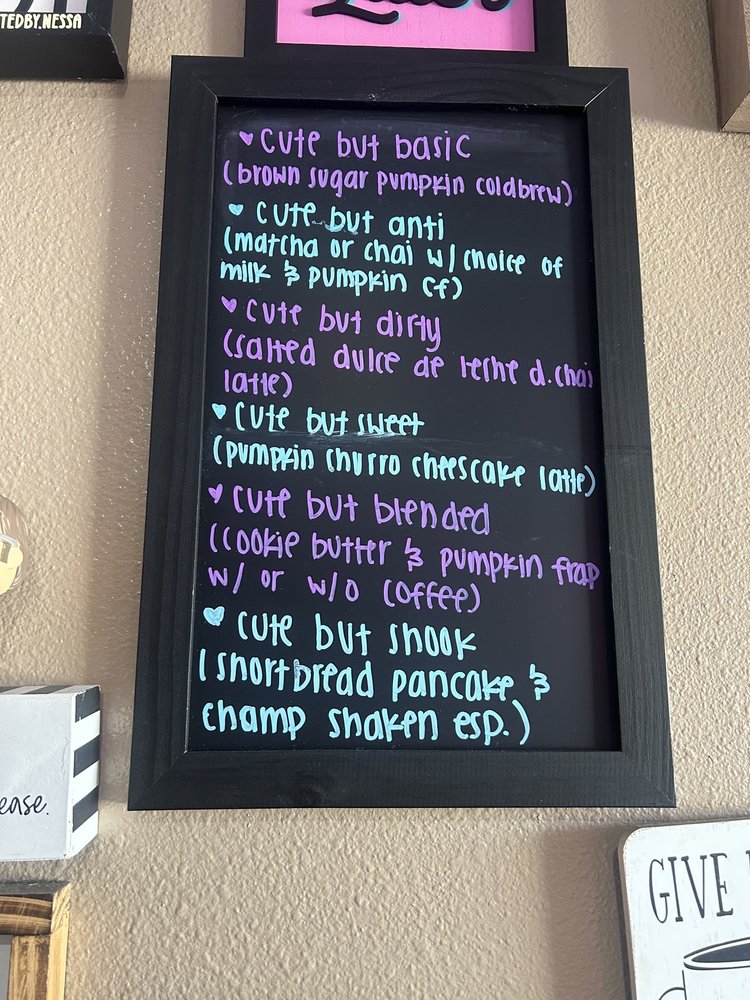 TEDBY.NESSA
♥ cute but basic
(brown sugar pumpkin coldbrew)
♥ cute but anti
(matcha or chai w/ choice of
milk & pumpkin cf)
♥ cute but dirty
(salted dulce de leche d.chai
latte)
♥ cute but sweet
(pumpkin churro cheescake latte)
♥ cute but blended
(cookie butter & pumpkin frap
w/ or w/o coffee)
♥ cute but shook
(shortbread pancake &
champ shaken esp.)
ease.
GIVE